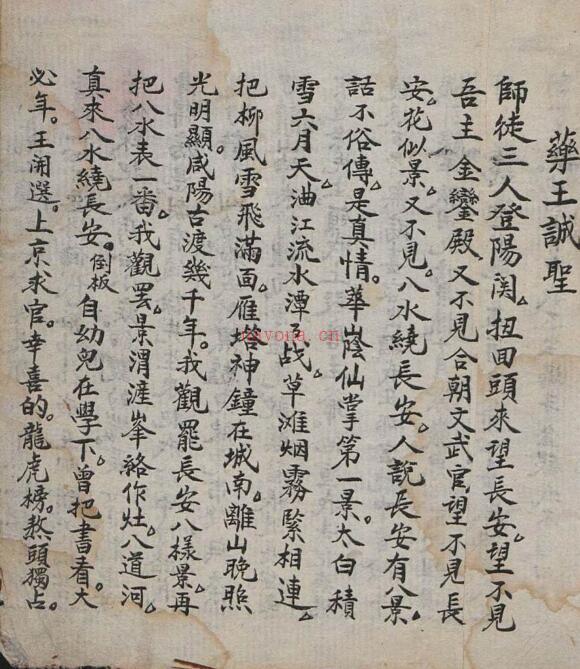 藥王誠聖
師徒三人登陽関。扭回頭來望長安。望不見
吾主金鑾殿。又不見合朝文武官。望不見長
安。花似景。又不見。八水繞長安。人說長安有八景。
話不俗傳。是真情。華蔭仙掌第一景。太白積
雪六月天。油江流水潭了战。草滩烟霧緊相連。
把柳風雪飛滿面。雁塔神鐘在城南。離山晚照
光明顯。咸陽古渡幾千年。我觀罷長安八樣景。再
把八水表一番。我觀罢。景渭涯峯絡作灶。八道河。
真來八水繞長安。倒板自幼兒在學下。曾把書看。大
必年。王開選。上京求官。幸喜的。龍虎榜。熬頭獨占。